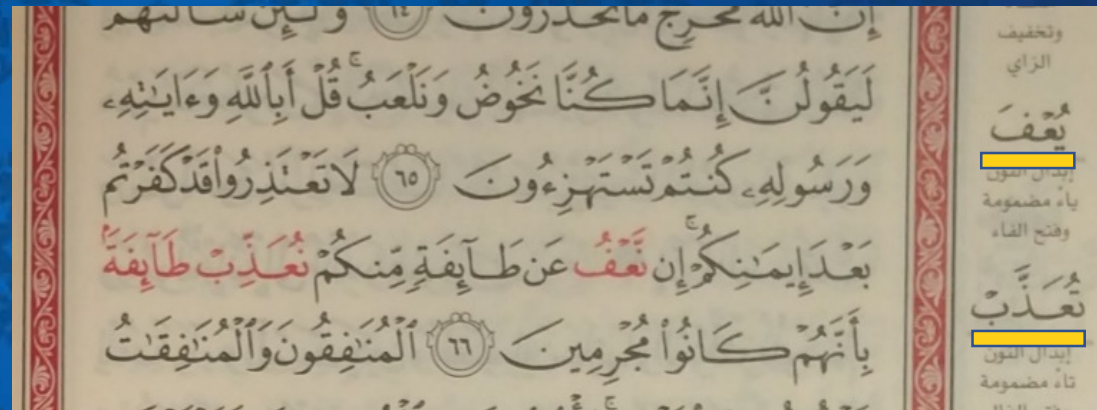 إِنَّ ٱللَّهَ مُخْرِجٌ مَّا تَحْذَرُونَ ٦٤ وَلَئِن سَأَلْتَهُمْ
لَيَقُولُنَّ إِنَّمَا كُنَّا نَخُوضُ وَنَلْعَبُ ۚ قُلْ أَبِٱللَّهِ وَءَايَٰتِهِۦ
وَرَسُولِهِۦ كُنتُمْ تَسْتَهْزِءُونَ ٦٥ لَا تَعْتَذِرُوا۟ قَدْ كَفَرْتُم
بَعْدَ إِيمَٰنِكُمْ ۚ إِن نَّعْفُ عَن طَآئِفَةٍ مِّنكُمْ نُعَذِّبْ طَآئِفَةًۢ
بِأَنَّهُمْ كَانُوا۟ مُجْرِمِينَ ٦٦ ٱلْمُنَٰفِقُونَ وَٱلْمُنَٰفِقَٰتُ
وتخفيف
الزاي
يُعْفَ
إبدال النون
ياء مضمومة
وفتح الفاء
تُعَذَّبْ
إبدال النون
تاء مضمومة